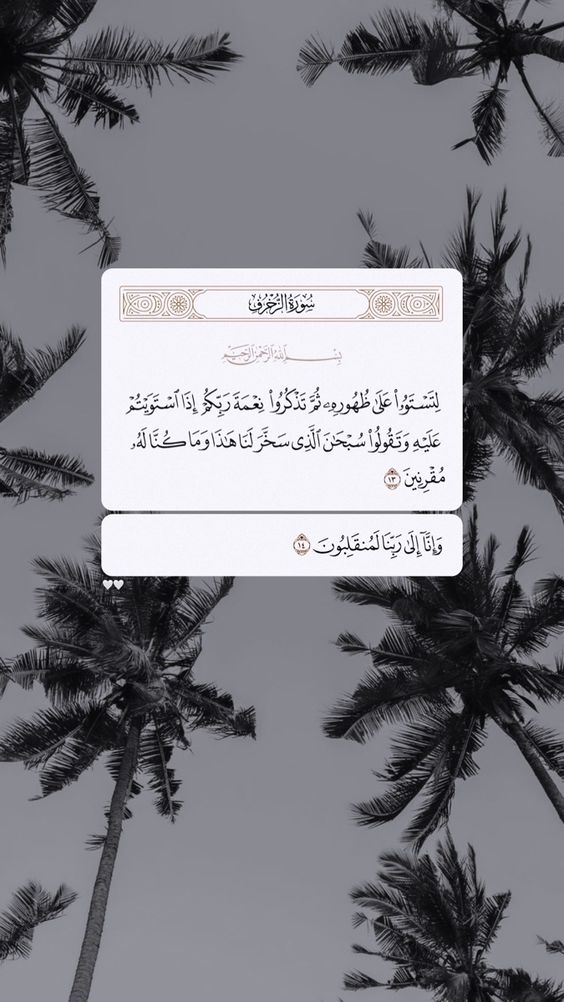 سُورَةُ الزُّخْرُفِ
بِسْمِ اللَّهِ الرَّحْمَٰنِ الرَّحِيمِ
لِتَسْتَوُۥا۟ عَلَىٰ ظُهُورِهِۦ ثُمَّ تَذْكُرُوا۟ نِعْمَةَ رَبِّكُمْ إِذَا ٱسْتَوَيْتُمْ
عَلَيْهِ وَتَقُولُوا۟ سُبْحَٰنَ ٱلَّذِى سَخَّرَ لَنَا هَٰذَا وَمَا كُنَّا لَهُۥ
مُقْرِنِينَ ١٣
وَإِنَّآ إِلَىٰ رَبِّنَا لَمُنقَلِبُونَ ١٤